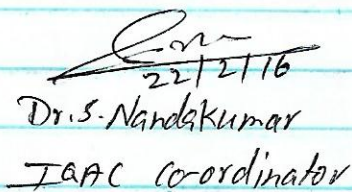 22/2/16
Dr. S. Nandakumar
IQAC Co-ordinator